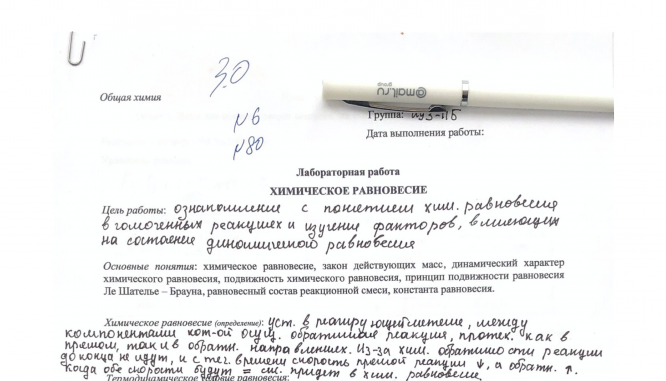 3.0
Общая химия
№6
№80
@mail.ru
group
Группа:
Дата выполнения работы:
Лабораторная работа
ХИМИЧЕСКОЕ РАВНОВЕСИЕ
Цель работы: ознакомление с понятием хим. равновесия
в гомогенных реакциях и изучение факторов, влияющих
на состояние динамического равновесия
Основные понятия: химическое равновесие, закон действующих масс, динамический характер
химического равновесия, подвижность химического равновесия, принцип подвижности равновесия
Ле Шателье – Брауна, равновесный состав реакционной смеси, константа равновесия.
Химическое равновесие (определение): уст. в реагирующей системе, между
компонентами кот-ой осущ. обратимая реакция, протек. как в
прямом, так и в обратн. направлениях. Из-за хим. обратимости реакции
до конца не идут, и с теч. времени скорость прямой реакции ↓, а обратн. ↑.
Когда обе скорости будут = см. придет в хим. равновесие.
Термодинамическое условие равновесия: